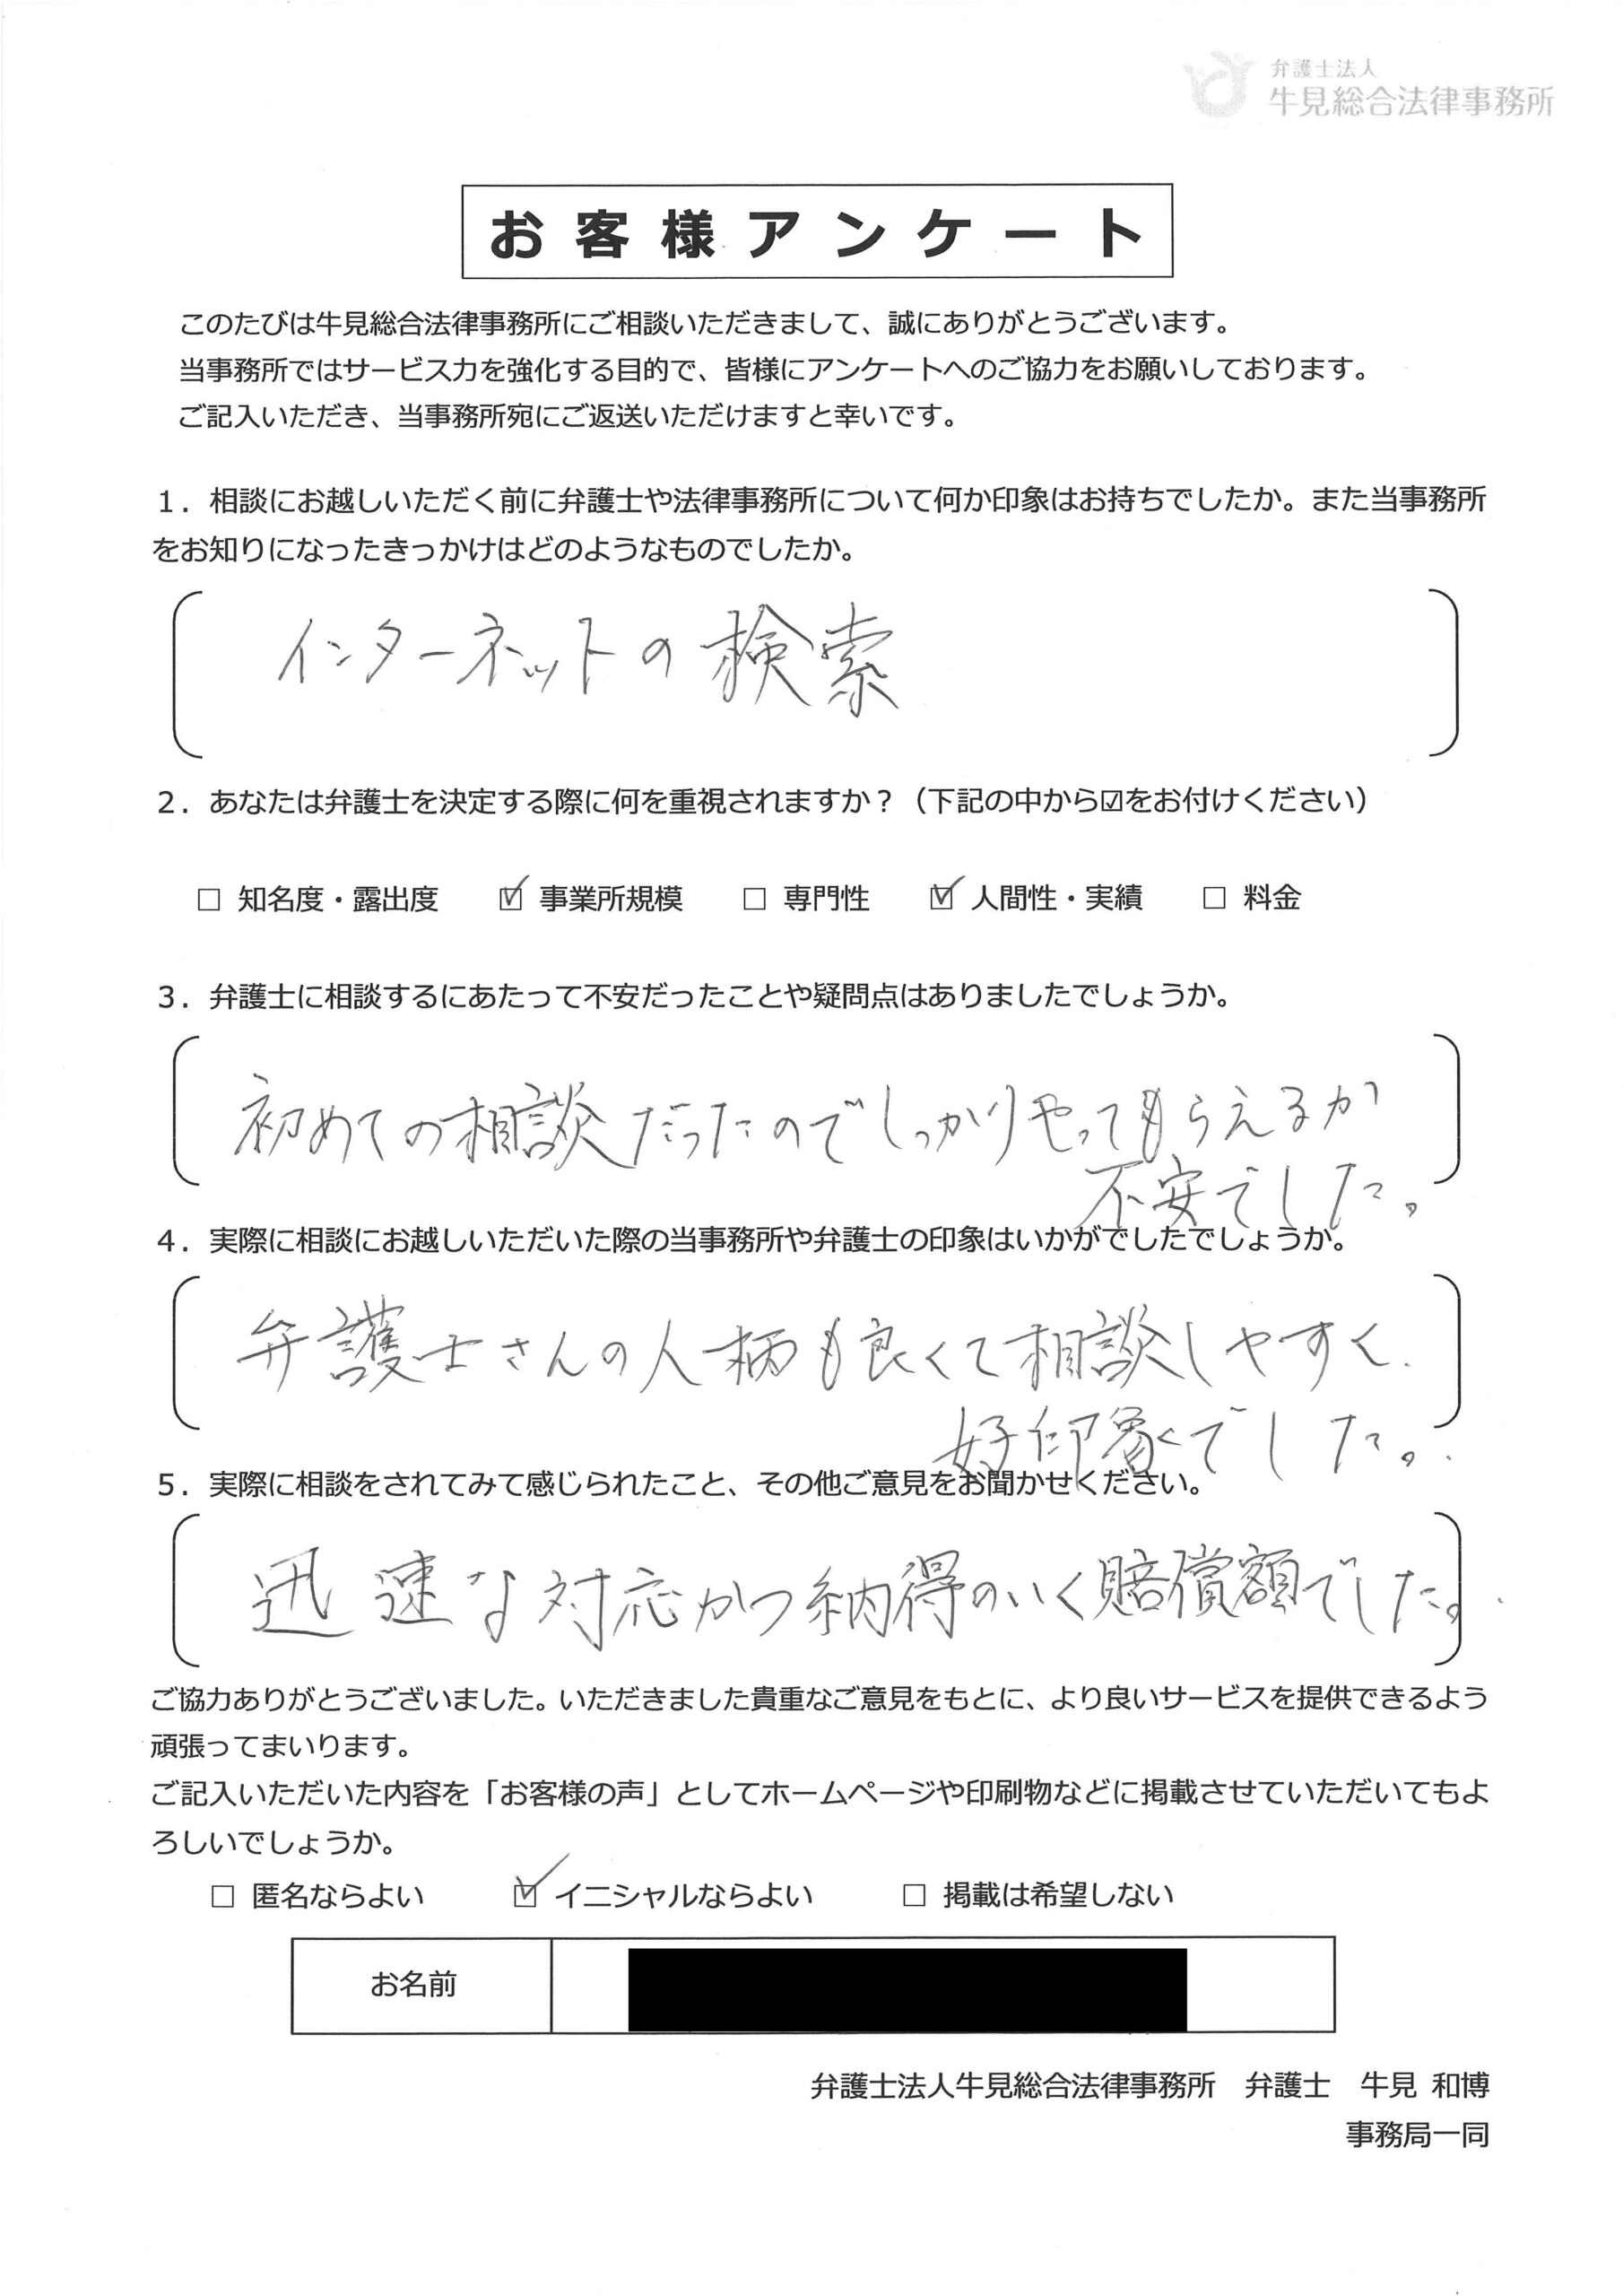 弁護士法人
牛見総合法律事務所
お客様アンケート
このたびは牛見総合法律事務所にご相談いただきまして、誠にありがとうございます。
当事務所ではサービス力を強化する目的で、皆様にアンケートへのご協力をお願いしております。
ご記入いただき、当事務所宛にご返送いただけますと幸いです。
１．相談にお越しいただく前に弁護士や法律事務所について何か印象はお持ちでしたか。また当事務所
をお知りになったきっかけはどのようなものでしたか。
インターネットの検索
２．あなたは弁護士を決定する際に何を重視されますか？（下記の中から☑をお付けください）
□ 知名度・露出度 ☑ 事業所規模 □ 専門性 ☑ 人間性・実績 □ 料金
３．弁護士に相談するにあたって不安だったことや疑問点はありましたでしょうか。
初めての相談だったのでしっかりやってもらえるか
不安でした。
４．実際に相談にお越しいただいた際の当事務所や弁護士の印象はいかがでしたでしょうか。
弁護士さんの人柄も良くて相談しやすく、
好印象でした。
５．実際に相談をされてみて感じられたこと、その他ご意見をお聞かせください。
迅速な対応かつ納得のいく賠償額でした。
ご協力ありがとうございました。いただきました貴重なご意見をもとに、より良いサービスを提供できるよう
頑張ってまいります。
ご記入いただいた内容を「お客様の声」としてホームページや印刷物などに掲載させていただいてもよ
ろしいでしょうか。
□ 匿名ならよい ☑ イニシャルならよい □ 掲載は希望しない
お名前
弁護士法人牛見総合法律事務所　弁護士　牛見 和博
事務局一同